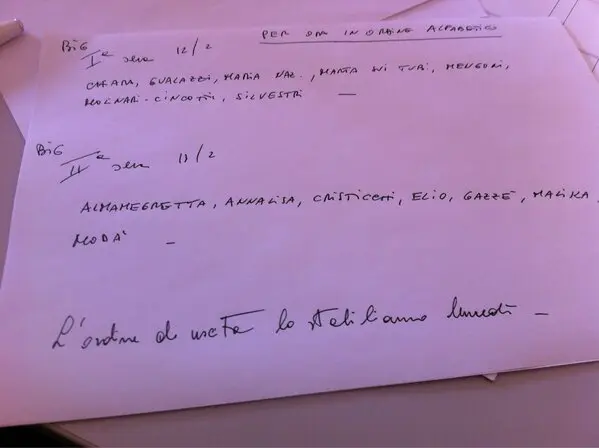 PER ORA IN ORDINE ALFABETICO
BIG
Iª sera 12/2
CHIARA, GUALAZZI, MARIA NAZ., MARTA SUI TUBI, MENGONI,
MOLINARI-CINCOTTI, SILVESTRI —
BIG
IIª sera 13/2
ALMAMEGRETTA, ANNALISA, CRISTICCHI, ELIO, GAZZÈ, MALIKA,
MODÀ —
L'ordine di uscita lo stabiliamo lunedì —